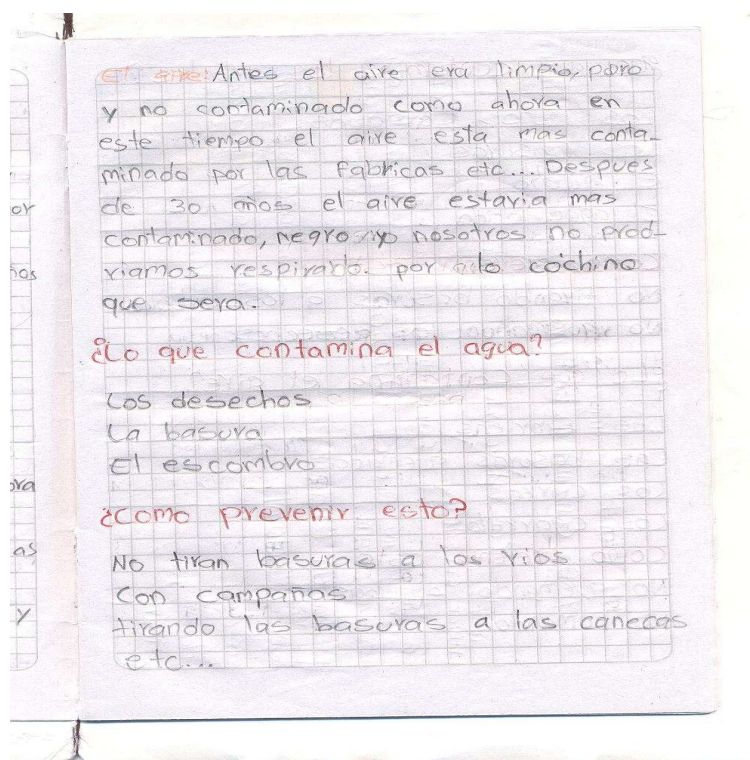 El aire: Antes el aire era limpio, puro
y no contaminado como ahora en
este tiempo el aire esta mas conta-
minado por las fabricas etc... Despues
de 30 años el aire estaria mas
contaminado, negro y nosotros no prod-
riamos respirarlo. por lo cochino
que sera.
¿Lo que contamina el agua?
Los desechos
La basura
El escombro
¿como prevenir esto?
No tiran basuras a los rios
Con campañas
tirando las basuras a las canecas
etc...
or
nas
ora
as
y